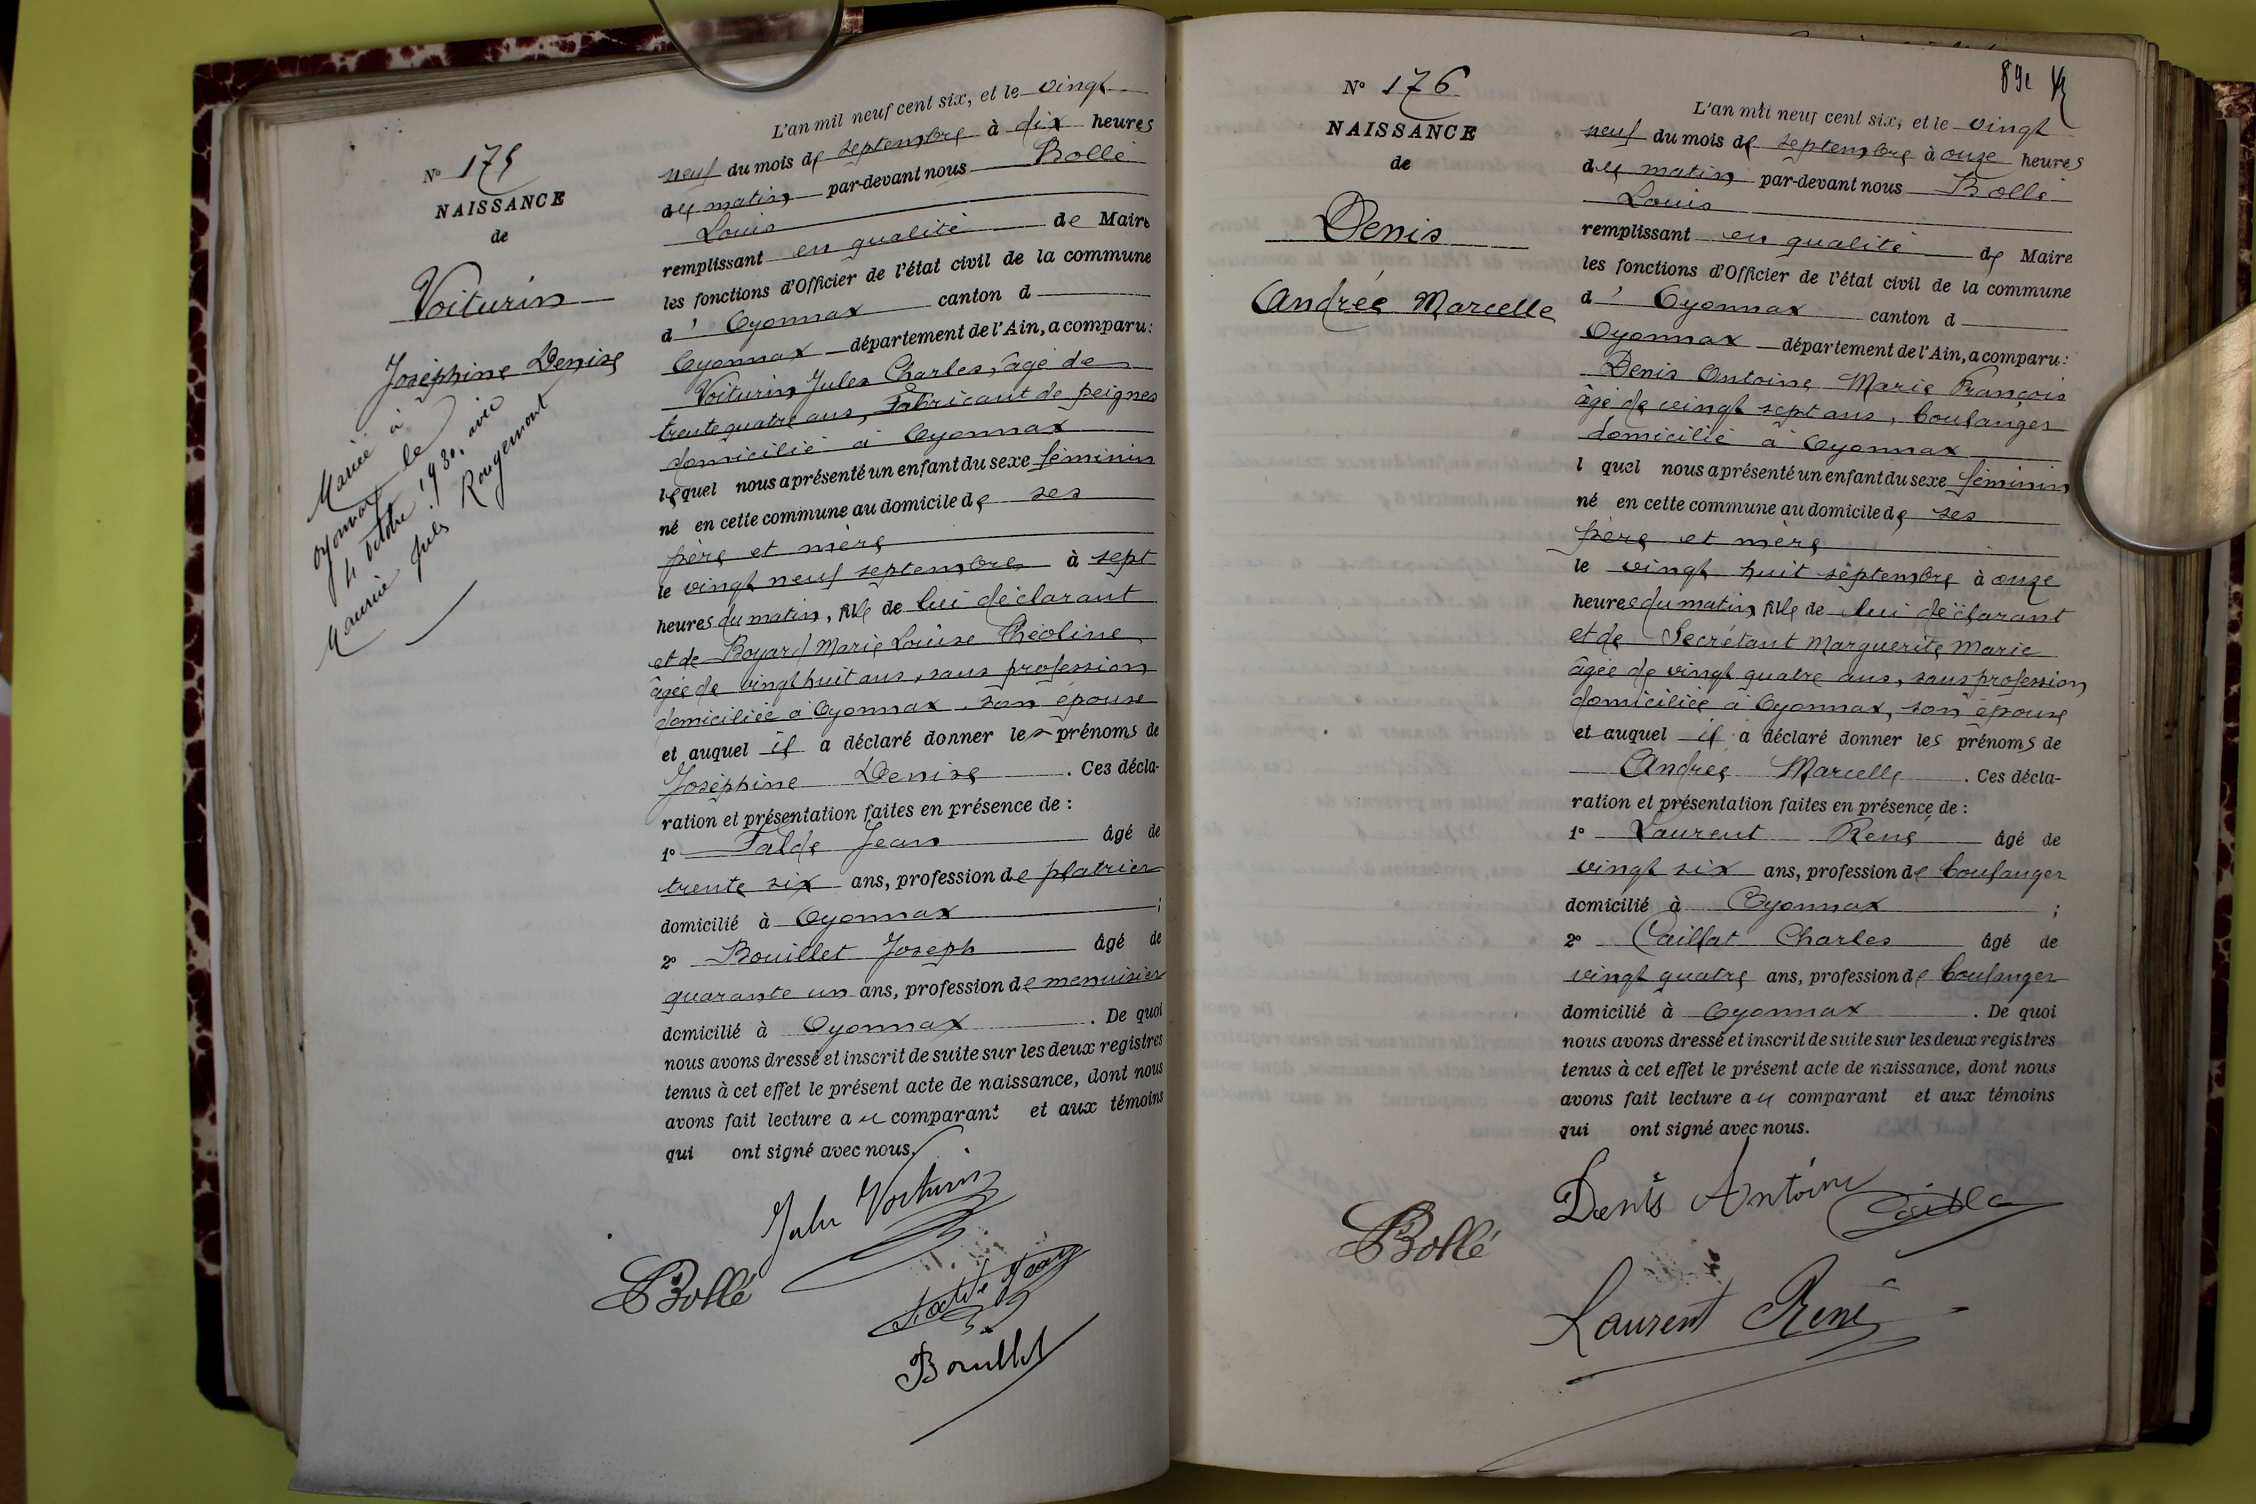 N° 175
NAISSANCE
de
Voiturin
Joséphine Denise
Mariée à
Oyonnax le
4 octobre 1930, avec
Maurice Jules Rougemont
L'an mil neuf cent six, et le vingt
neuf du mois de septembre à dix heures
du matin par-devant nous Bollé
Louis
remplissant en qualité de Maire
les fonctions d'Officier de l'état civil de la commune
d' Oyonnax canton d
Oyonnax département de l'Ain, a comparu:
Voiturin Jules Charles, âgé de
trente quatre ans, Fabricant de peignes
domicilié à Oyonnax
lequel nous a présenté un enfant du sexe féminin
né en cette commune au domicile de ses
père et mère
le vingt neuf septembre à sept
heures du matin, fille de lui déclarant
et de Boyard Marie Louise Théoline
âgée de vingt huit ans, sans profession
domiciliée à Oyonnax, son épouse
et auquel il a déclaré donner les prénoms de
Joséphine Denise . Ces décla-
ration et présentation faites en présence de :
1° Falde Jean âgé de
trente six ans, profession de platrier
domicilié à Oyonnax ;
2° Bouillet Joseph âgé de
quarante un ans, profession de menuisier
domicilié à Oyonnax . De quoi
nous avons dressé et inscrit de suite sur les deux registres
tenus à cet effet le présent acte de naissance, dont nous
avons fait lecture au comparant et aux témoins
qui ont signé avec nous.
Jules Voiturin
Bollé
Falde Jean
Bouillet
89e
N° 176
NAISSANCE
de
Denis
Andrée Marcelle
L'an mil neuf cent six, et le vingt
neuf du mois de septembre à onze heures
du matin par-devant nous Bollé
Louis
remplissant en qualité de Maire
les fonctions d'Officier de l'état civil de la commune
d' Oyonnax canton d
Oyonnax département de l'Ain, a comparu:
Denis Antoine Marie François
âgé de vingt sept ans, boulanger
domicilié à Oyonnax
l quel nous a présenté un enfant du sexe féminin
né en cette commune au domicile de ses
père et mère
le vingt huit septembre à onze
heures du matin, fille de lui déclarant
et de Secrétant Marguerite Marie
âgée de vingt quatre ans, sans profession
domiciliée à Oyonnax, son épouse
et auquel il a déclaré donner les prénoms de
Andrée Marcelle . Ces décla-
ration et présentation faites en présence de :
1° Laurent René âgé de
vingt six ans, profession de boulanger
domicilié à Oyonnax ;
2° Caillat Charles âgé de
vingt quatre ans, profession de boulanger
domicilié à Oyonnax . De quoi
nous avons dressé et inscrit de suite sur les deux registres
tenus à cet effet le présent acte de naissance, dont nous
avons fait lecture au comparant et aux témoins
qui ont signé avec nous.
Denis Antoine
Bollé
Laurent René